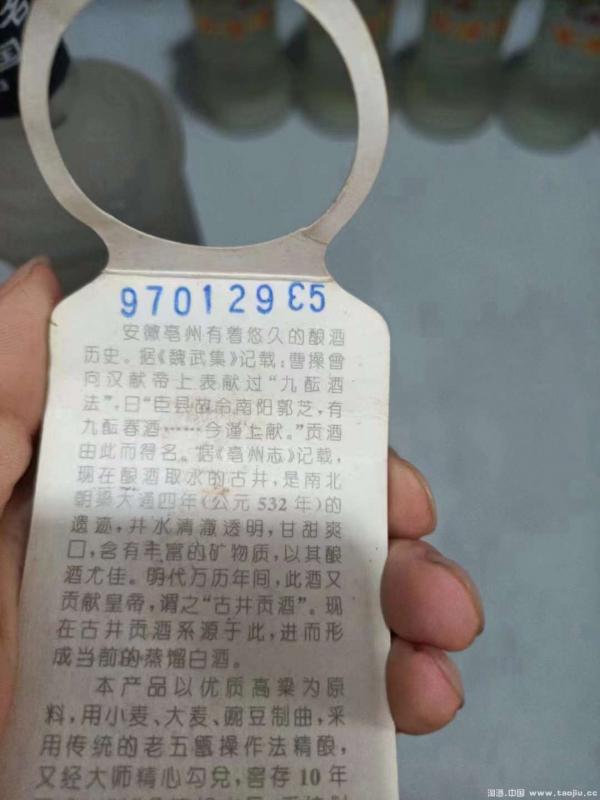 名
国
970129 E5
安徽亳州有着悠久的酿酒
历史。据《魏武集》记载:曹操曾
向汉献帝上表献过“九酝酒
法”,曰“臣县故令南阳郭芝,有
九酝春酒……今谨上献。”贡酒
由此而得名。据《亳州志》记载,
现在酿酒取水的古井,是南北
朝梁大通四年(公元532年)的
遗迹,井水清澈透明,甘甜爽
口,含有丰富的矿物质,以其酿
酒尤佳。明代万历年间,此酒又
贡献皇帝,谓之“古井贡酒”。现
在古井贡酒系源于此,进而形
成当前的蒸馏白酒。
本产品以优质高粱为原
料,用小麦、大麦、豌豆制曲,采
用传统的老五甑操作法精酿,
又经大师精心勾兑,窖存10年
淘酒.中国 www.taojiu.cc